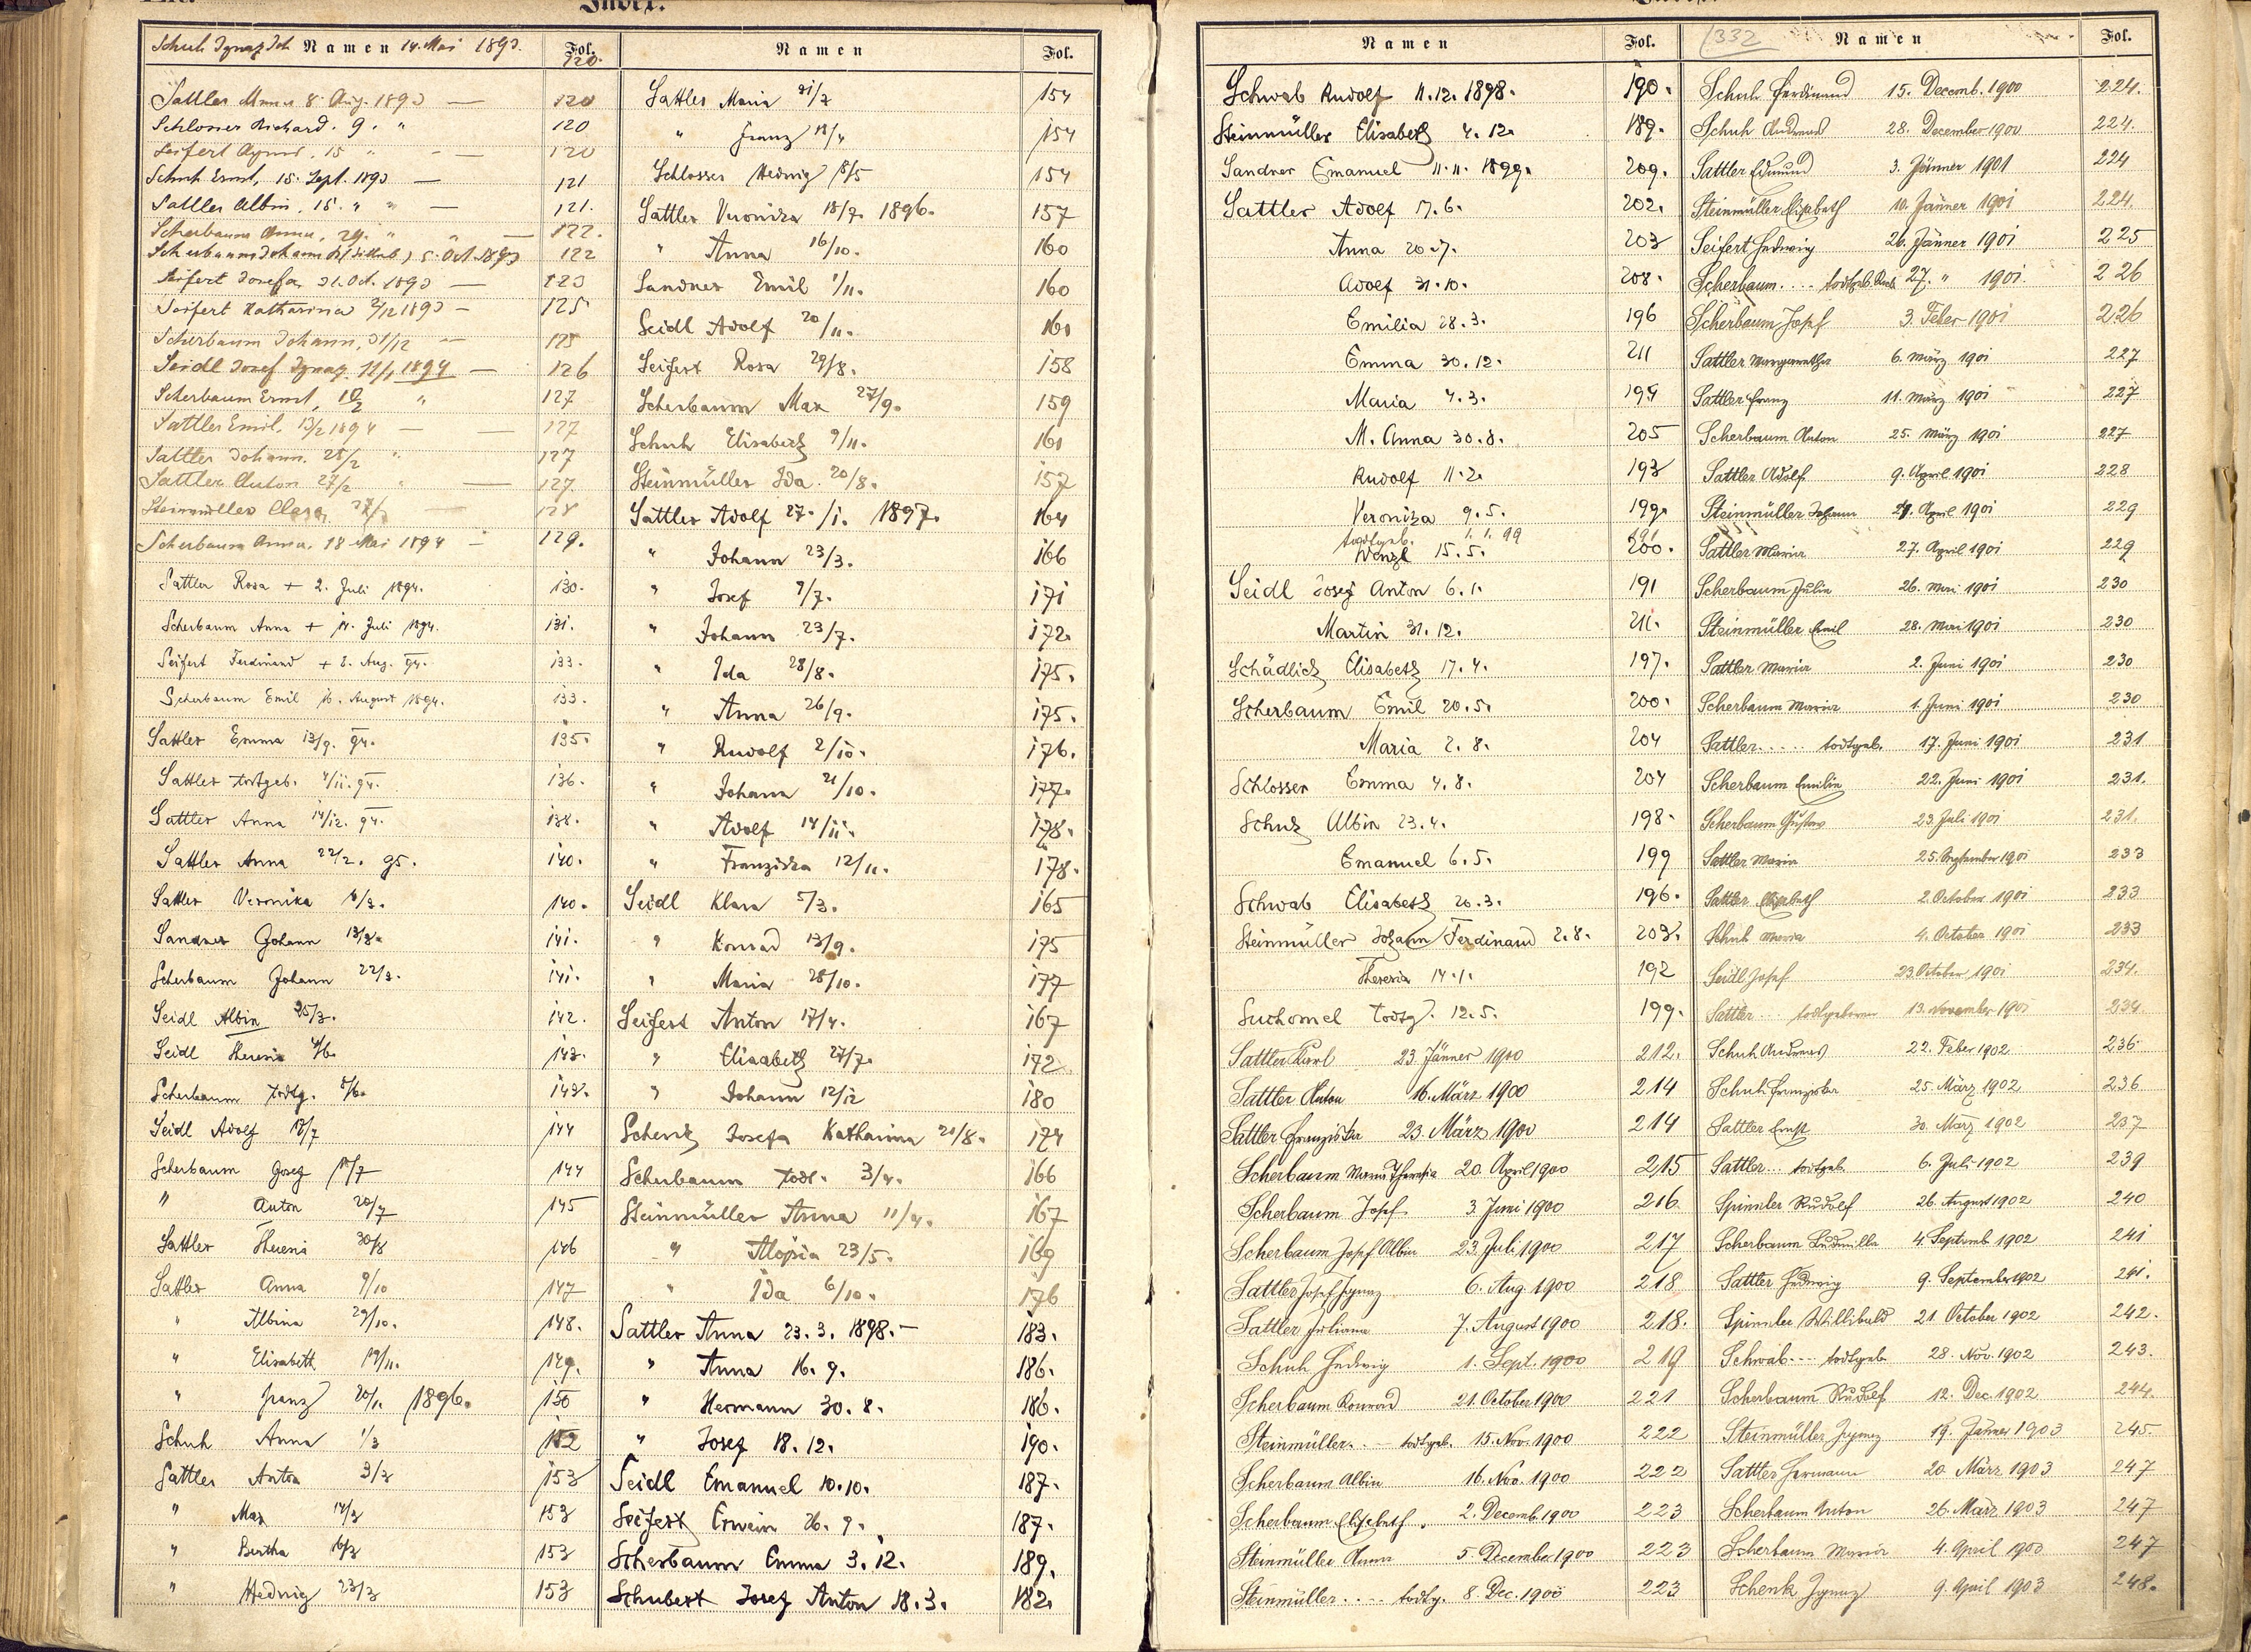 Index.
Namen Fol.
Schuh Ignaz Joh 14. Mai 1893. 120.
Sattler Anna 8. Aug. 1893 — 120
Schlosser Richard. 9. " 120
Seifert Agnes. 15 " — 120
Schuh Ernst, 15. Sept. 1893 — 121
Sattler Albin, 15. " " — 121.
Scherbaum Anna, 29. " " — 122.
Scherbaum Johann 5. Oct. 1893 122
Seifert Josefa 31. Oct. 1893 — 123
Seifert Katharina 2/12 1893 — 125
Scherbaum Johann, 31/12 — 125
Seidl Josef Ignaz. 11/1 1894 — 126
Scherbaum Ernst, 10/2 " 127
Sattler Emil. 13/2 1894 — 127
Sattler Johann. 25/2 " 127
Sattler Anton 27/2 " — 127.
Steinmüller Clara 128
Scherbaum Anna. 18 Mai 1894 — 129.
Sattler Rosa + 2. Juli 1894. 130.
Scherbaum Anna + 11. Juli 1894. 131.
Seifert Ferdinand + 2. Aug. 94. 133.
Scherbaum Emil 16. August 1894. 133.
Sattler Emma 13/9. 94. 135.
Sattler todtgeb. 4/11. 94. 136.
Sattler Anna 14/12. 94. 138.
Sattler Anna 22/2. 95. 140.
Sattler Veronika 4/3. 140.
Sandner Johann 13/3. 141.
Scherbaum Johann 22/3. 141.
Seidl Albin 25/3. 142.
Seidl Theresia 4/6. 143.
Scherbaum todtg. 8/6. 143.
Seidl Adolf 12/7 144
Scherbaum Josef 17/7 144
" Anton 20/7 145
Sattler Theresia 30/8 146
Sattler Anna 9/10 147
" Albina 29/10. 148.
" Elisabeth 19/11. 149.
" Franz 20/1. 1896. 150
Schuh Anna 1/3 152
Sattler Anton 3/3 153
" Max 14/3 153
" Bertha 16/3 153
" Hedwig 23/3 153
Namen Fol.
Sattler Maria 21/3 154
" Franz 18/4 154
Schlosser Hedwig 8/5 154
Sattler Veronika 18/7. 1896. 157
" Anna 16/10. 160
Sandner Emil 1/11. 160
Seidl Adolf 20/11. 161
Seifert Rosa 29/8. 158
Scherbaum Max 27/9. 159
Schuh Elisabeth 9/11. 161
Steinmüller Ida. 20/8. 157
Sattler Adolf 27./1. 1897. 164
" Johann 23/3. 166
" Josef 9/7. 171
" Johann 23/7. 172.
" Ida 28/8. 175.
" Anna 26/9. 175.
" Rudolf 2/10. 176.
" Johann 21/10. 177.
" Adolf 14/11. 178.
" Franziska 12/11. 178.
Seidl Klara 5/3. 165
" Konrad 13/9. 175
" Maria 28/10. 177
Seifert Anton 17/4. 167
" Elisabeth 27/7. 172
" Johann 12/12 180
Schenk Josefa Katharina 20/8. 174
Scherbaum todt. 3/4. 166
Steinmüller Anna 11/4. 167
" Aloisia 23/5. 169
" Ida 6/10. 176
Sattler Anna 23. 3. 1898. — 183.
" Anna 16. 9. 186.
" Hermann 30. 8. 186.
" Josef 18. 12. 190.
Seidl Emanuel 10. 10. 187.
Seifert Erwin 26. 9. 187.
Scherbaum Emma 3. 12. 189.
Schubert Josef Anton 18. 3. 182.
Namen Fol.
Schwab Rudolf 11. 12. 1898. 190.
Steinmüller Elisabeth 4. 12. 189.
Sandner Emanuel 11. 11. 1899. 209.
Sattler Adolf 17. 6. 202.
Anna 20. 7. 203
Adolf 31. 10. 208.
Emilia 28. 3. 196
Emma 30. 12. 211
Maria 4. 3. 194
M. Anna 30. 8. 205
Rudolf 11. 2. 193
Veronika 9. 5. 199.
todtgeb. 1. 1. 99 191
Wenzl 15. 5. 200.
Seidl Josef Anton 6. 1. 191
Martin 31. 12. 211.
Schädlich Elisabeth 17. 4. 197.
Scherbaum Emil 20. 5. 200.
Maria 2. 8. 204
Schlosser Emma 4. 8. 204
Schuh Albin 23. 4. 198.
Emanuel 6. 5. 199
Schwab Elisabeth 20. 3. 196.
Steinmüller Johann Ferdinand 2. 8. 203.
Theresia 14. 1. 192
Suchomel todtg. 12. 5. 199.
Sattler Karl 23. Jänner 1900 212.
Sattler Anton 16. März 1900 214
Sattler Franziska 23. März 1900 214
Scherbaum Maria Theresia 20. April 1900 215
Scherbaum Josef 3. Juni 1900 216
Scherbaum Josef Albin 23. Juli 1900 217
Sattler Josef Ignaz 6. Aug. 1900 218
Sattler Juliana 7. August 1900 218.
Schuh Hedwig 1. Sept. 1900 219
Scherbaum Konrad 21. October 1900 221
Steinmüller. . — todtgeb. 15. Nov. 1900 222
Scherbaum Albin 16. Nov. 1900 222
Scherbaum Elisabeth. 2. Decemb. 1900 223
Steinmüller Anna 5. December 1900 223
Steinmüller . . . . todtg. 8. Dec. 1900 223
332 Namen Fol.
Schuh Ferdinand 15. Decemb. 1900 224.
Schuh Andreas 28. December 1900 224.
Sattler Edmund 3. Jänner 1901 224
Steinmüller Elisabeth 10. Jänner 1901 224.
Seifert Hedwig 26. Jänner 1901 225
Scherbaum . . . . todtgeb. 27. " 1901. 226
Scherbaum Josef 3. Feber 1901 226
Sattler Margaretha 6. März 1901 227
Sattler Franz 11. März 1901 227
Scherbaum Anton 25. März 1901 227
Sattler Adolf 9. April 1901 228
Steinmüller Johann 21. April 1901 229
Sattler Maria 27. April 1901 229
Scherbaum Julia 26. Mai 1901 230
Steinmüller Emil 28. Mai 1901 230
Sattler Maria 2. Juni 1901 230
Scherbaum Maria 1. Juni 1901 230
Sattler . . . . . todtgeb. 17. Juni 1901 231
Scherbaum Emilia 22. Juni 1901 231.
Scherbaum Gustav 23. Juli 1901 231.
Sattler Maria 25. September 1901 233
Sattler Elisabeth 2. October 1901 233
Schuh Maria 4. October 1901 233
Seidl Josef 23. October 1901 234.
Sattler . . . todtgeboren 13. November 1901 234.
Schuh Andreas 22. Feber 1902 236
Schuh Franziska 25. März 1902 236
Sattler Ernst 30. März 1902 237
Sattler . . . todtgeb. 6. Juli 1902 239
Spinnler Rudolf 26. August 1902 240
Scherbaum Ludmilla 4. Septemb. 1902 241
Sattler Hedwig 9. September 1902 241.
Spinnler Willibald 21 October 1902 242.
Schwab - - - todtgeb 28. Nov. 1902 243.
Scherbaum Rudolf 12. Dec. 1902 244.
Steinmüller Ignaz 19. Jänner 1903 245.
Sattler Hermann 20. März 1903 247
Scherbaum Anton 26. März 1903 247
Scherbaum Maria 4. April 1903 247
Schenk Ignaz 9. April 1903 248.